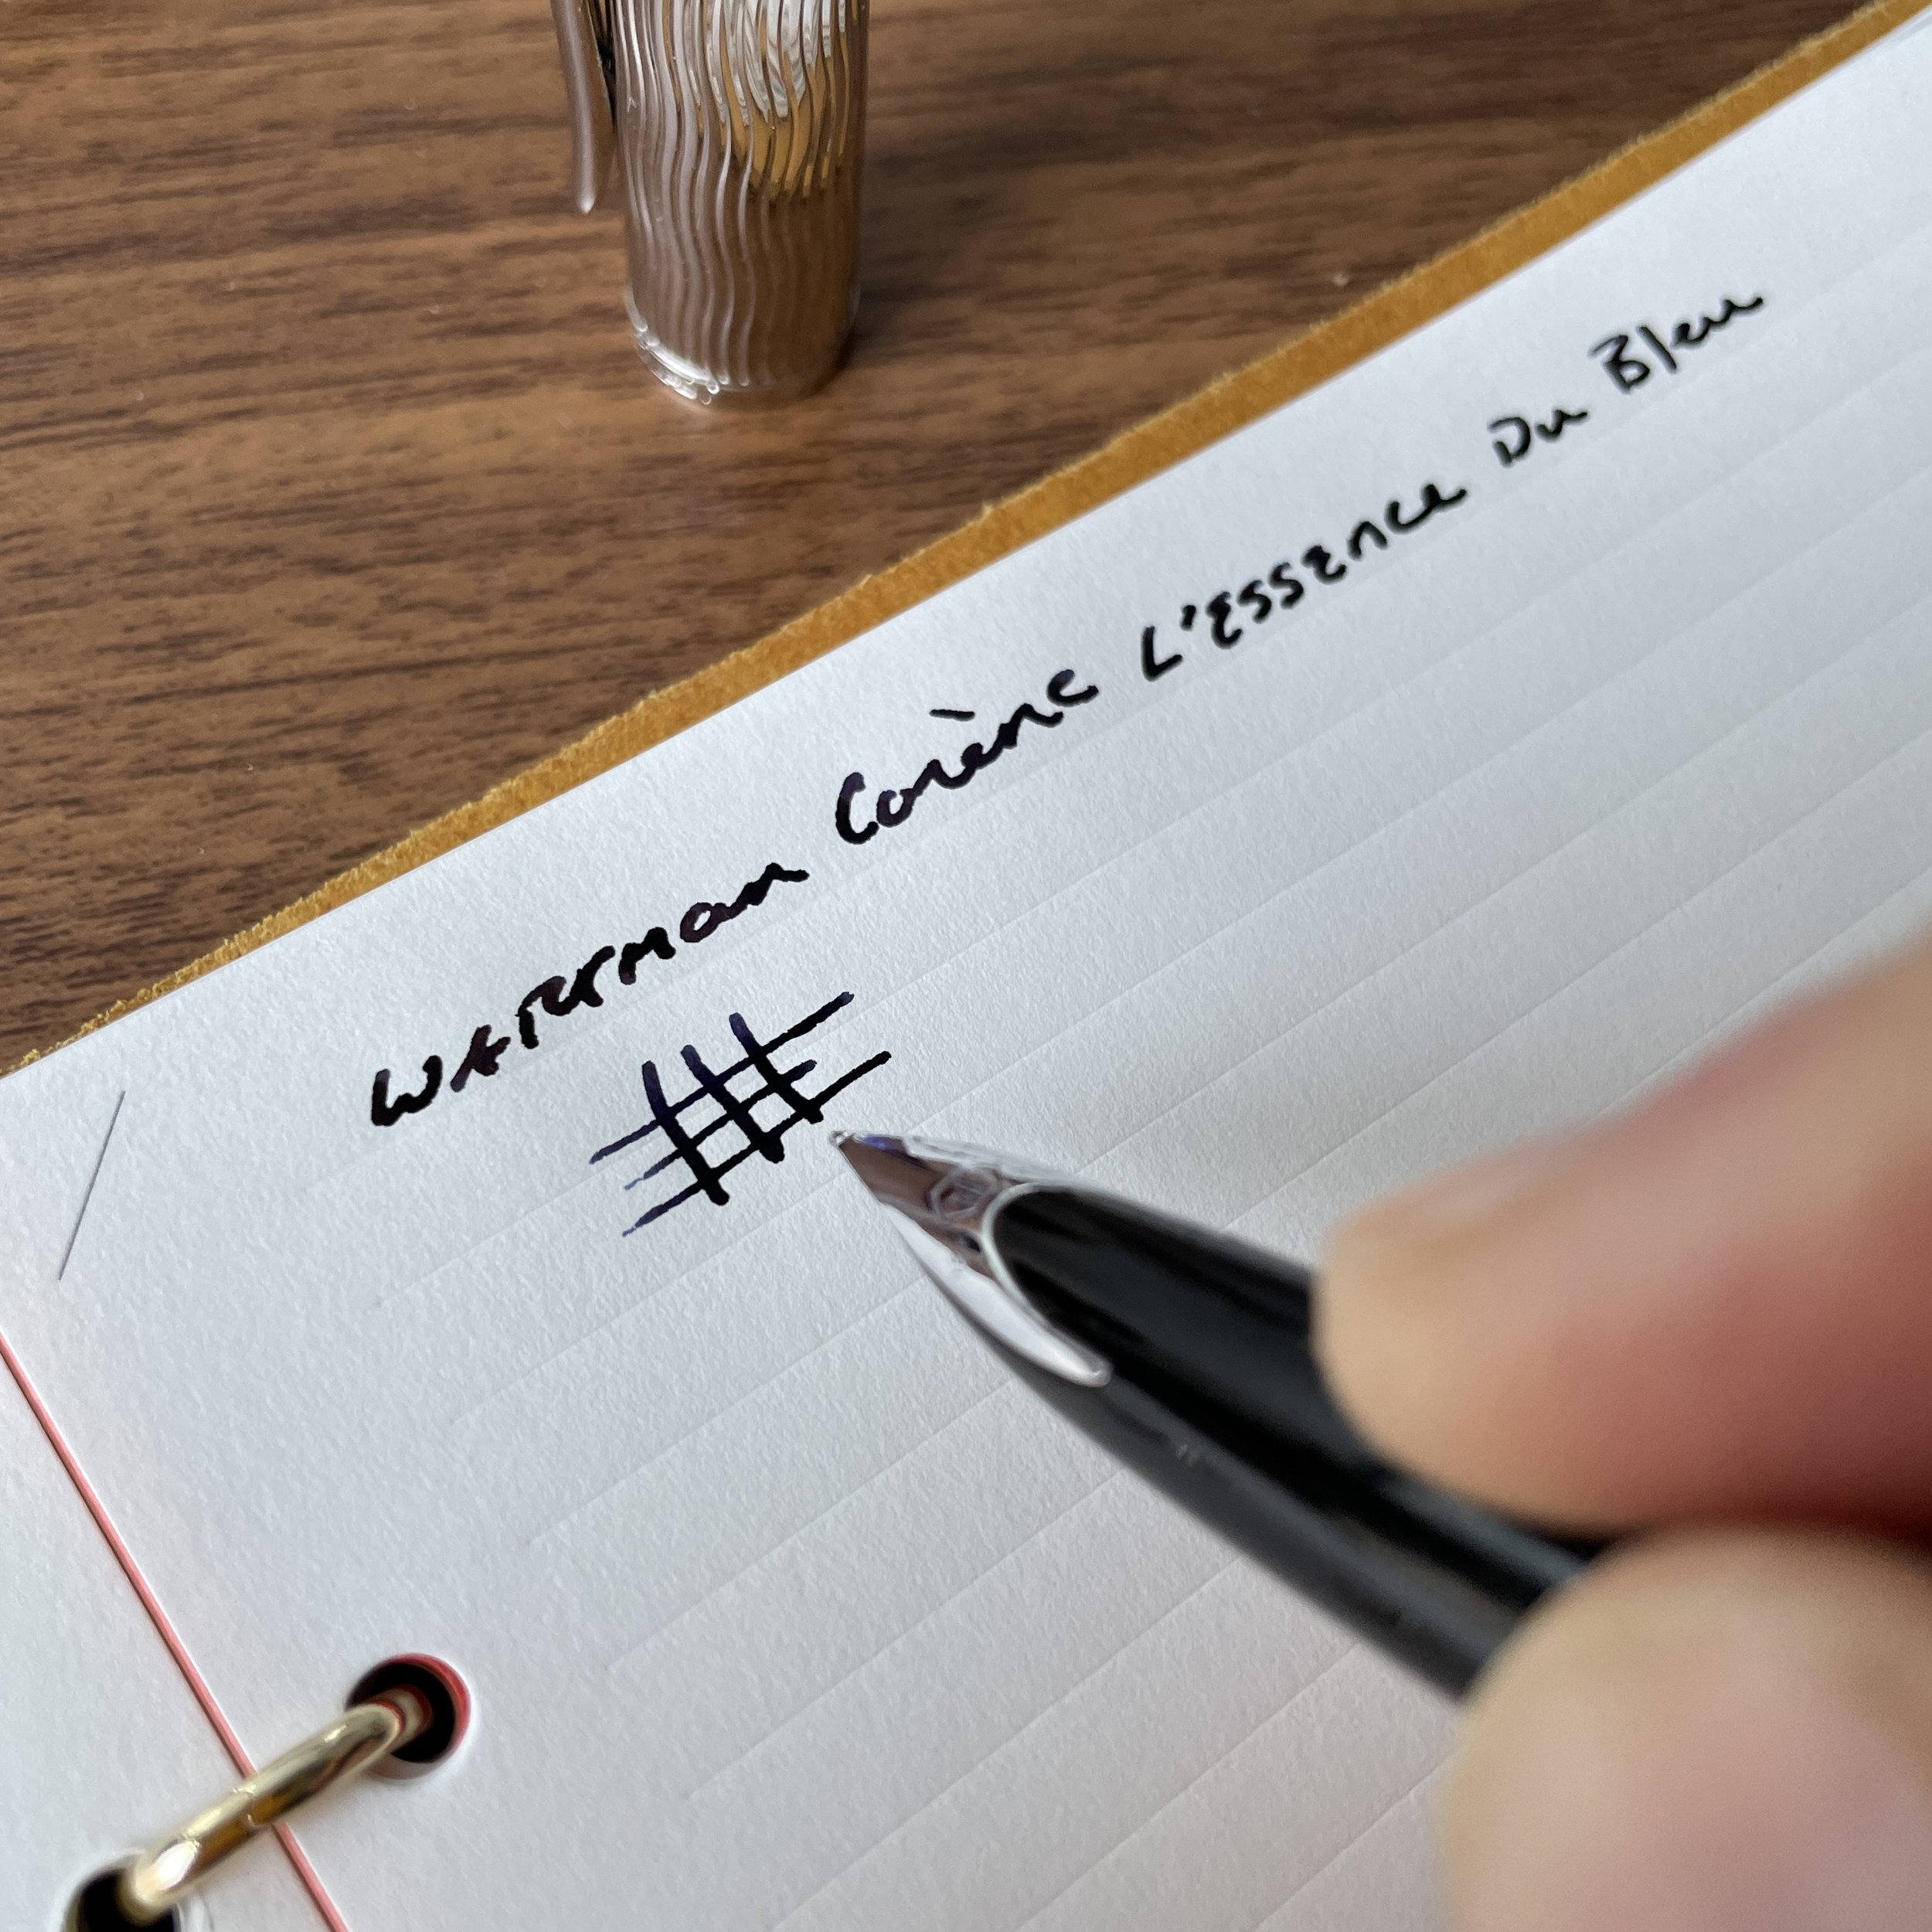 WATERMAN Carène L'ESSENCE Du Bleu